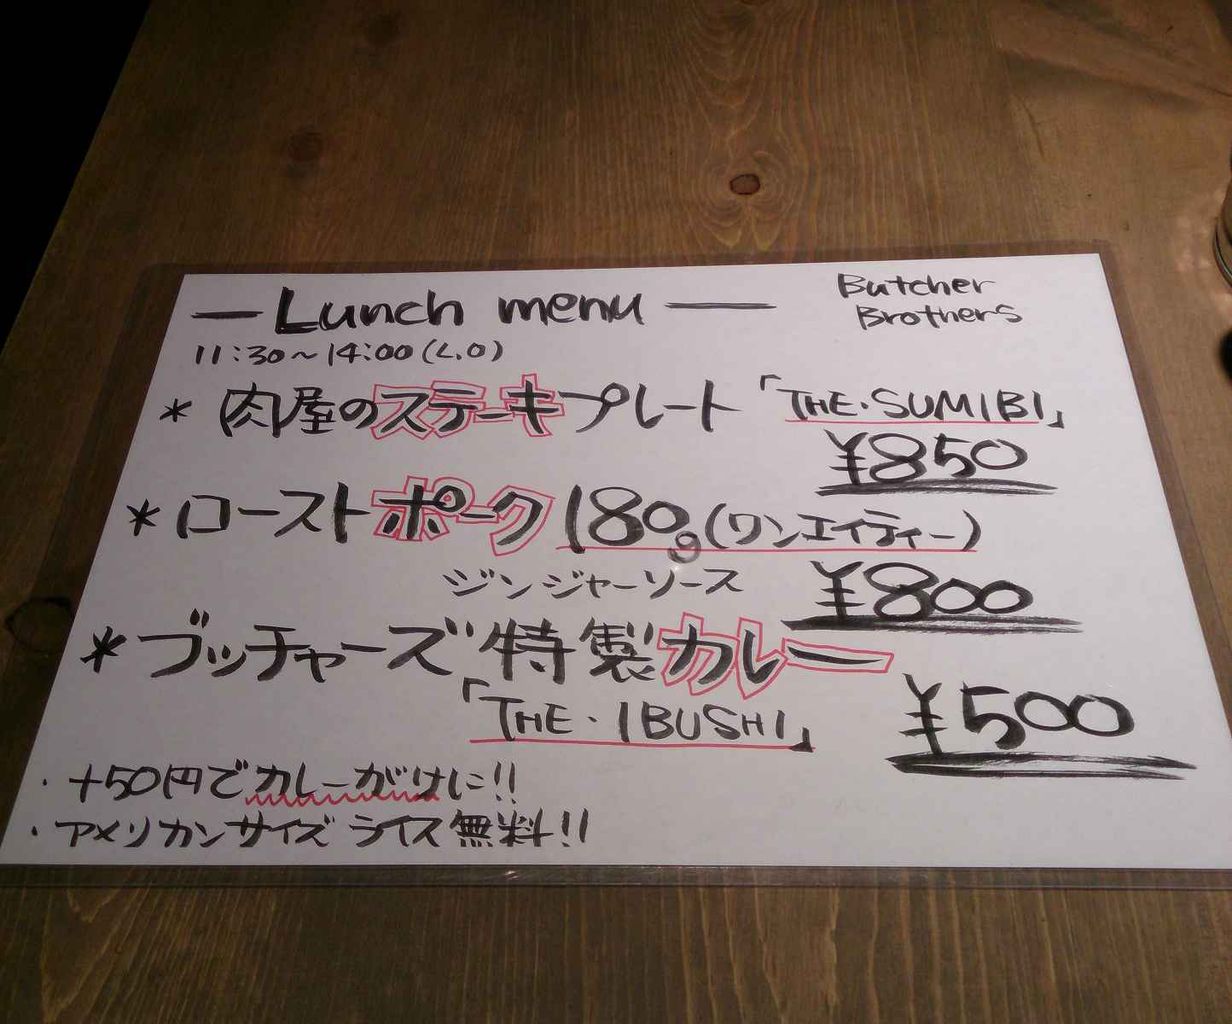 — Lunch menu —
Butcher
Brothers
11:30～14:00(L.O)
* 肉屋のステーキプレート 「THE・SUMIBI」
¥850
* ローストポーク 180g(ワンエイティー)
ジンジャーソース ¥800
* ブッチャーズ 特製カレー
「THE・IBUSHI」 ¥500
・+50円でカレーがけに!!
・アメリカンサイズ ライス無料!!